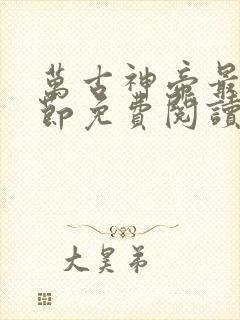 萬古神帝最
節免費閱讀
大昊弟